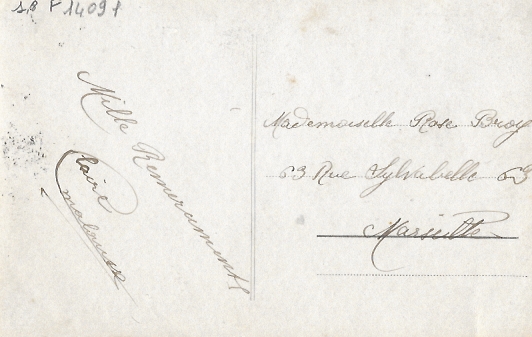 Mille Remerciments
Claire
Mademoiselle Rose Broy
63 Rue Sylvabelle 63
Marseille